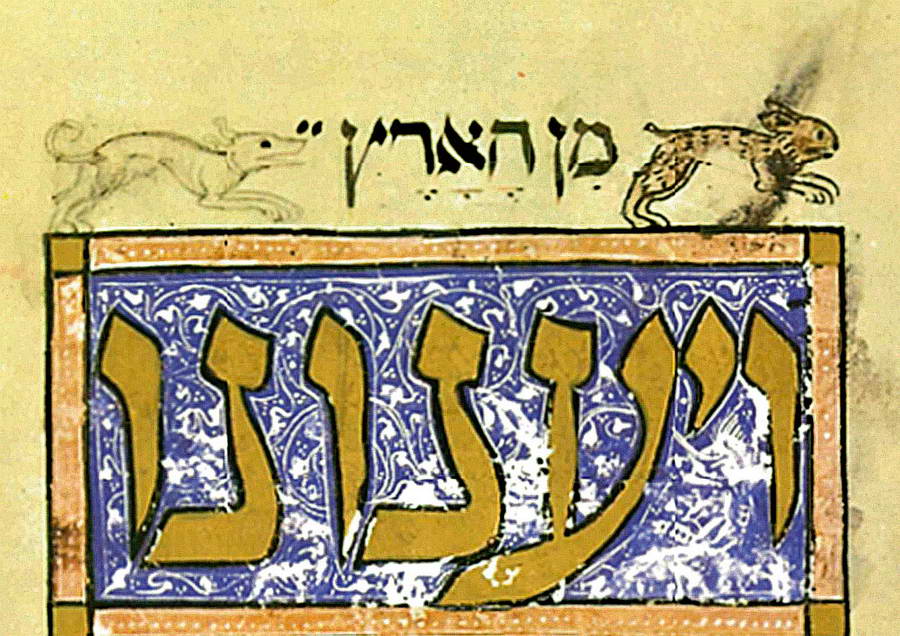 מן הארץ״
ויענונו